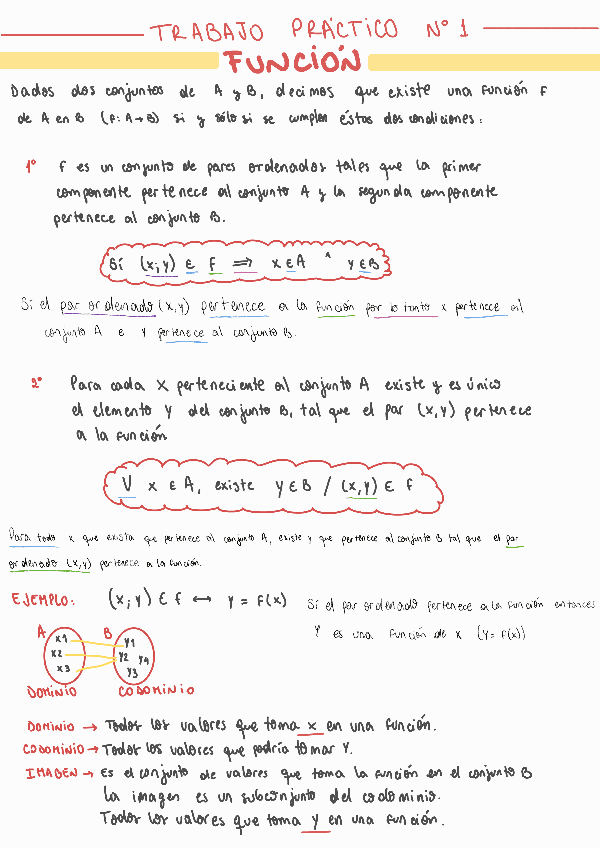 TRABAJO PRÁCTICO Nº 1
FUNCIÓN
Dados dos conjuntos de A y B, decimos que existe una función f
de A en B (f: A→B) si y sólo si se cumplen éstas dos condiciones:
1º f es un conjunto de pares ordenados tales que la primer
componente pertenece al conjunto A y la segunda componente
pertenece al conjunto B.
Si (x;y) ∈ f ⟹ x∈A ^ y∈B
Si el par ordenado (x,y) pertenece a la función por lo tanto x pertenece al
conjunto A e y pertenece al conjunto B.
2º Para cada x perteneciente al conjunto A existe y es único
el elemento y del conjunto B, tal que el par (x,y) pertenece
a la función
∀ x ∈ A, existe y ∈ B / (x,y) ∈ f
Para todo x que exista que pertenece al conjunto A, existe y que pertenece al conjunto B tal que el par
ordenado (x,y) pertenece a la función.
EJEMPLO: (x;y) ∈ f ↔ y = f(x) Si el par ordenado pertenece a la función entonces
Y es una función de x (y= f(x))
A B
x1 y1
x2 y2 y4
x3 y3
DOMINIO CODOMINIO
DOMINIO → Todos los valores que toma x en una función.
CODOMINIO → Todos los valores que podría tomar Y.
IMAGEN → Es el conjunto de valores que toma la función en el conjunto B
La imagen es un subconjunto del codominio.
Todos los valores que toma y en una función.